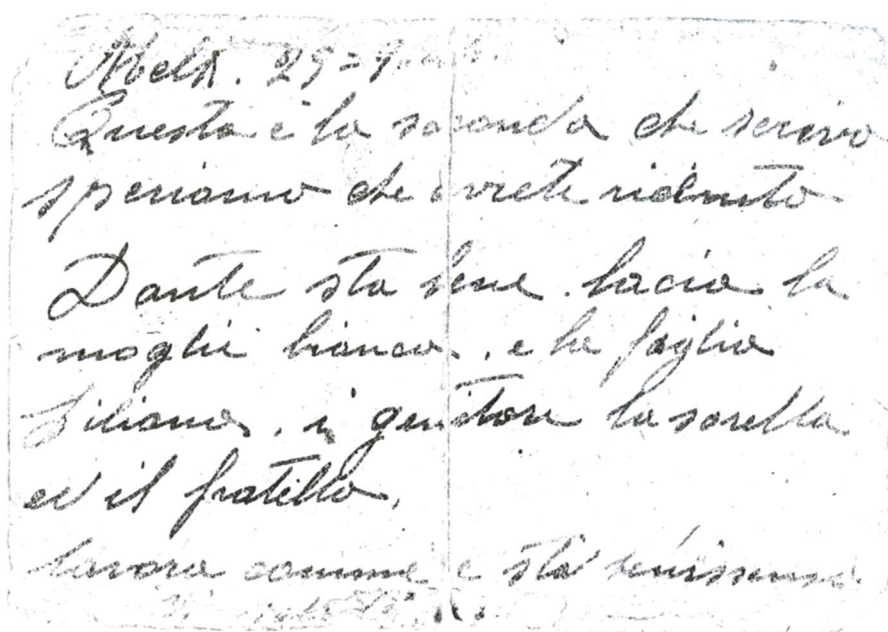 25=9
Questa è la seconda che scrivo
speriamo che avrete ricevuto
Dante sta bene. bacia la
moglie bianca. e la figlia
Liliana. i genitori la sorella
ed il fratello.
lavora comme e sta benissimo